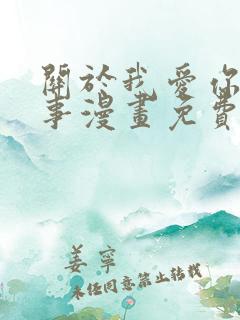 關於我愛你
事漫畫免費
姜寧
未經同意禁止轉載